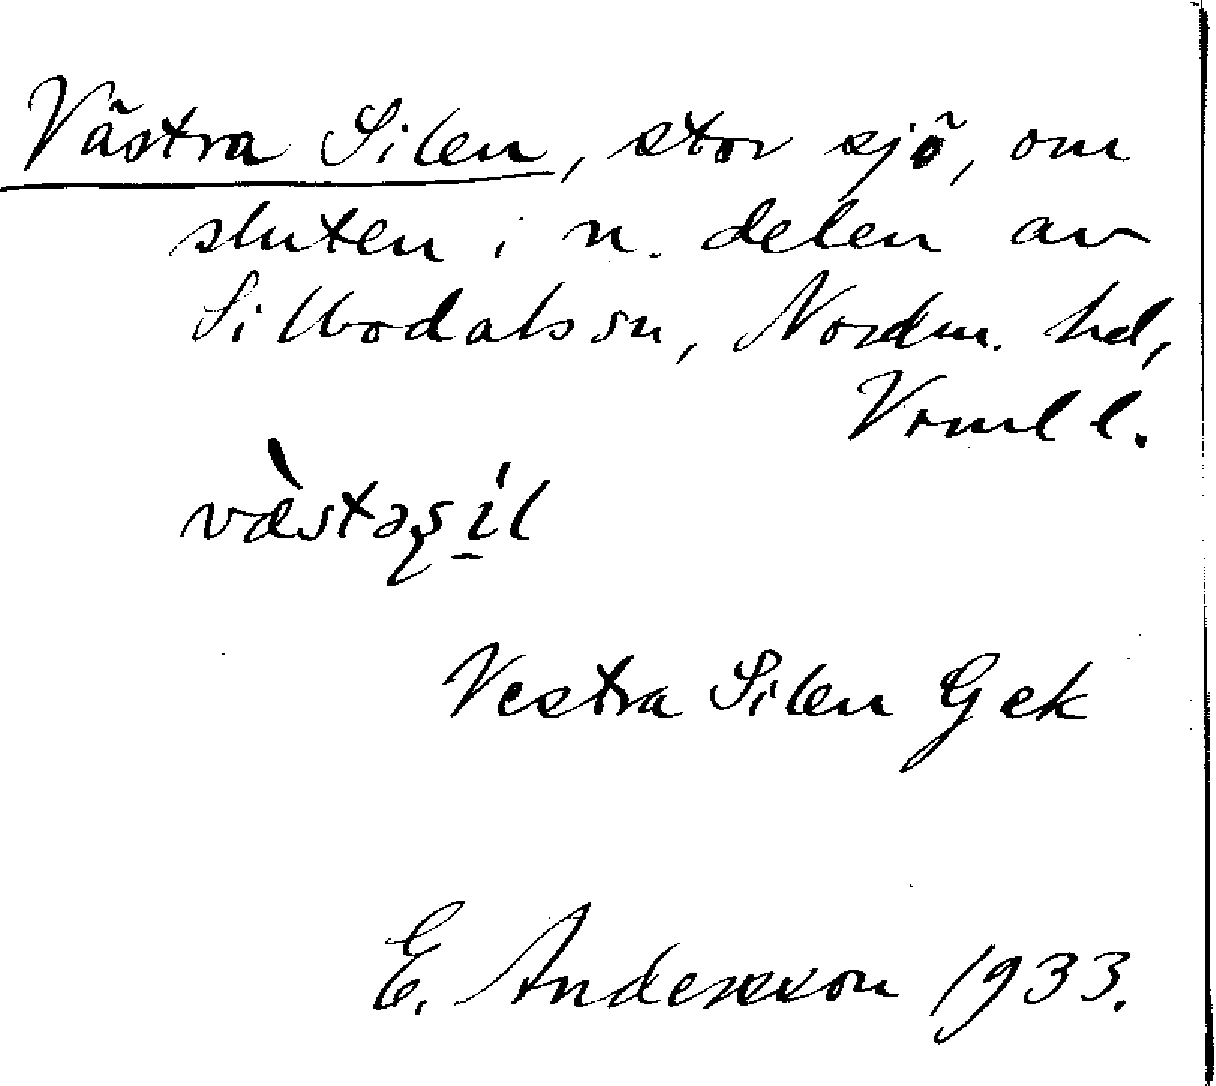 Västra Silen, stor sjö, om
sluten i n. delen av
Sillbodals sn, Nordm. hd,
Vrml l.
Vestra Silen Gek
E. Andersson 1933.